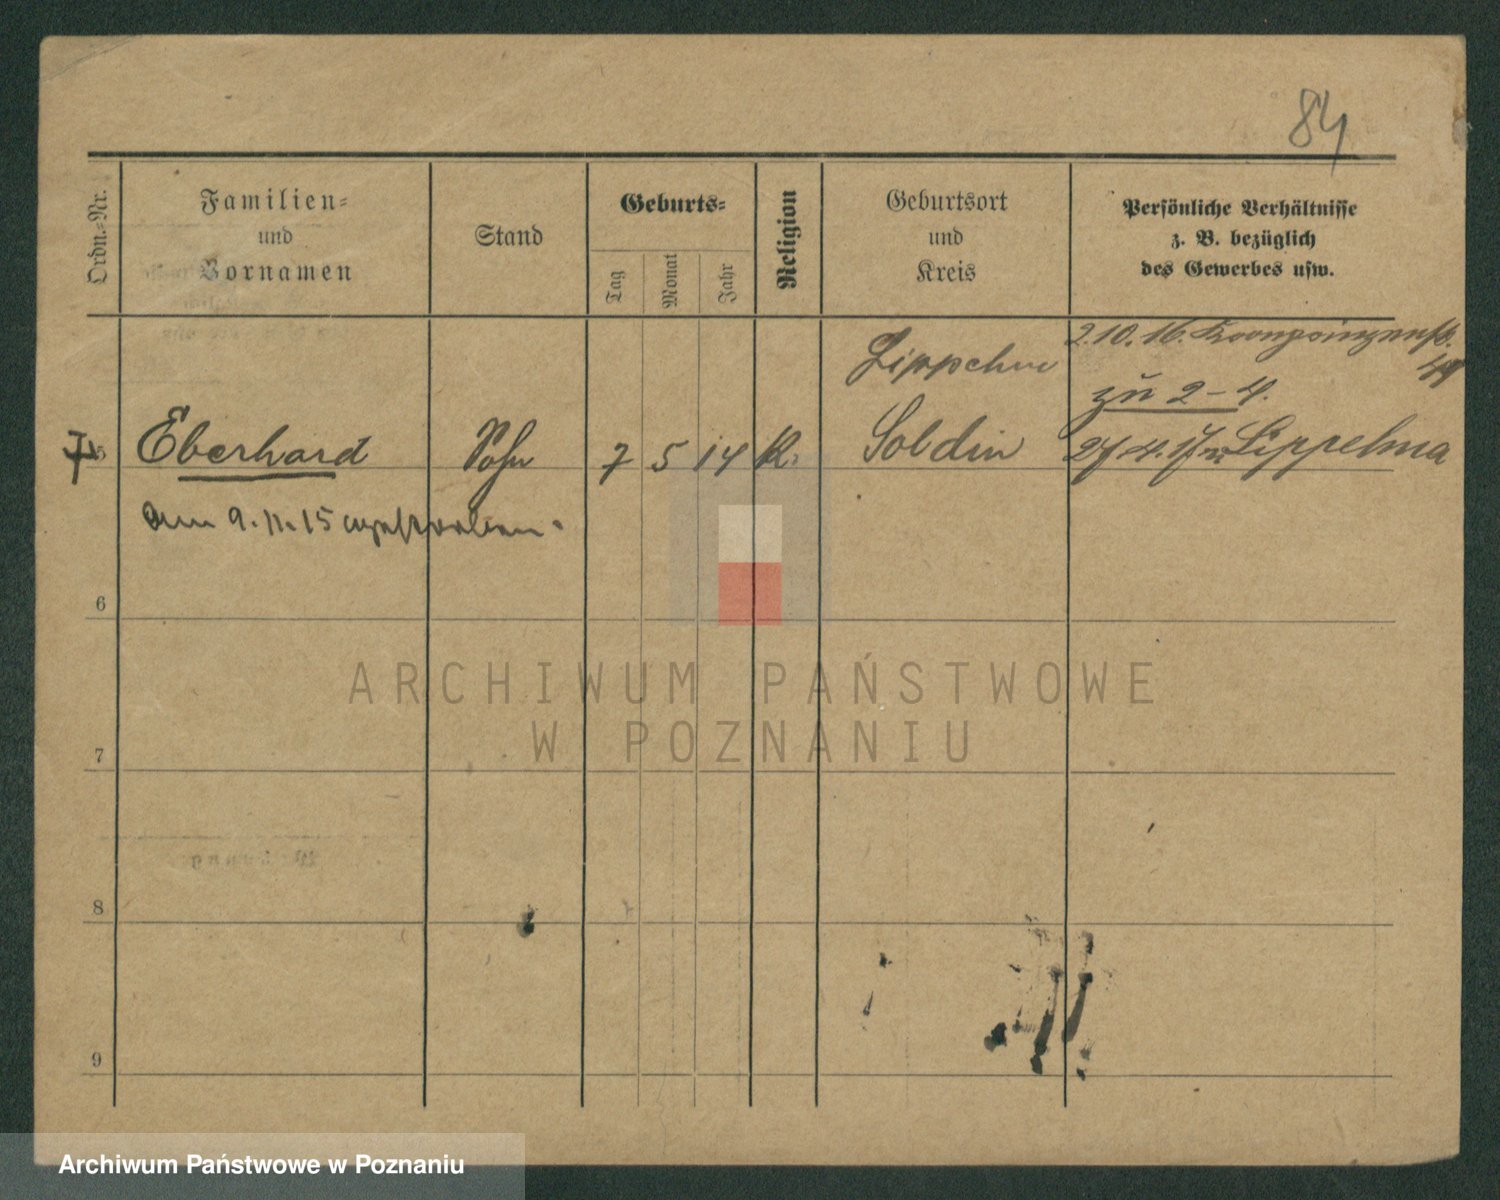 84
Ordn.-Nr.
Familien-
und
Vornamen
Stand
Geburts-
Tag
Monat
Jahr
Religion
Geburtsort
und
Kreis
Persönliche Verhältnisse
z. B. bezüglich
des Gewerbes usw.
2.10.16.
Lippehne
zu 2-4.
5 Eberhard Sohn 7 5 14 K. Soldin 27.4.17 n Lippehna
am 9.11.15
6
7
8
9
ARCHIWUM PAŃSTWOWE
W POZNANIU
Archiwum Państwowe w Poznaniu